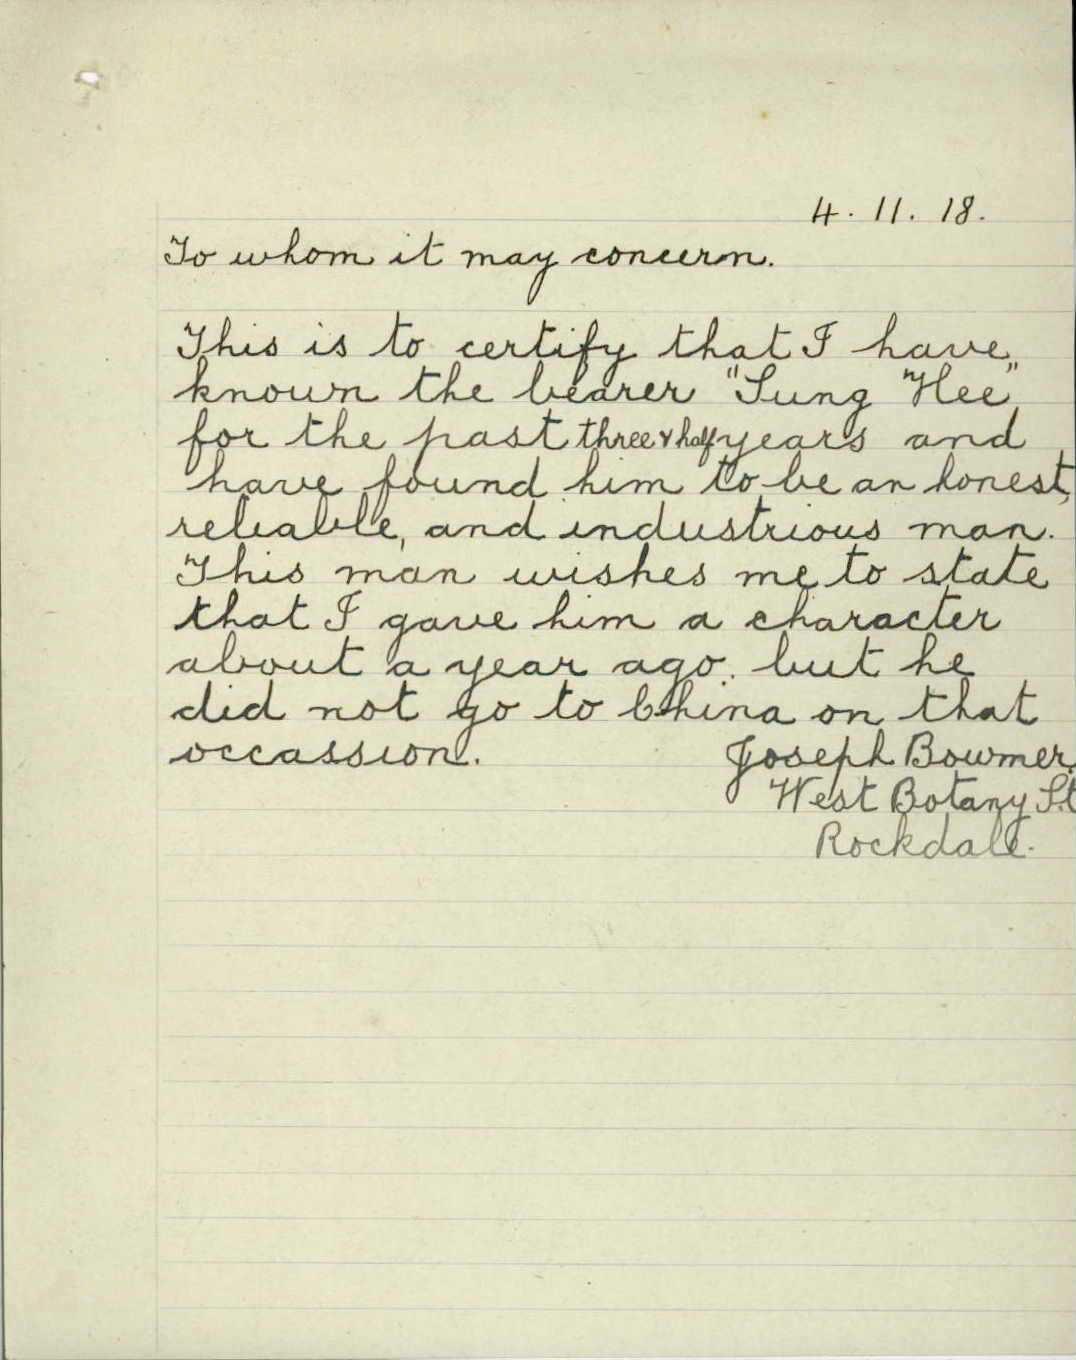 4. 11. 18.
To whom it may concern.
This is to certify that I have
known the bearer "Sung Hee"
for the past three & half years and
have found him to be an honest,
reliable, and industrious man.
This man wishes me to state
that I gave him a character
about a year ago. but he
did not go to China on that
occassion.
Joseph Bowmer.
West Botany St
Rockdale.